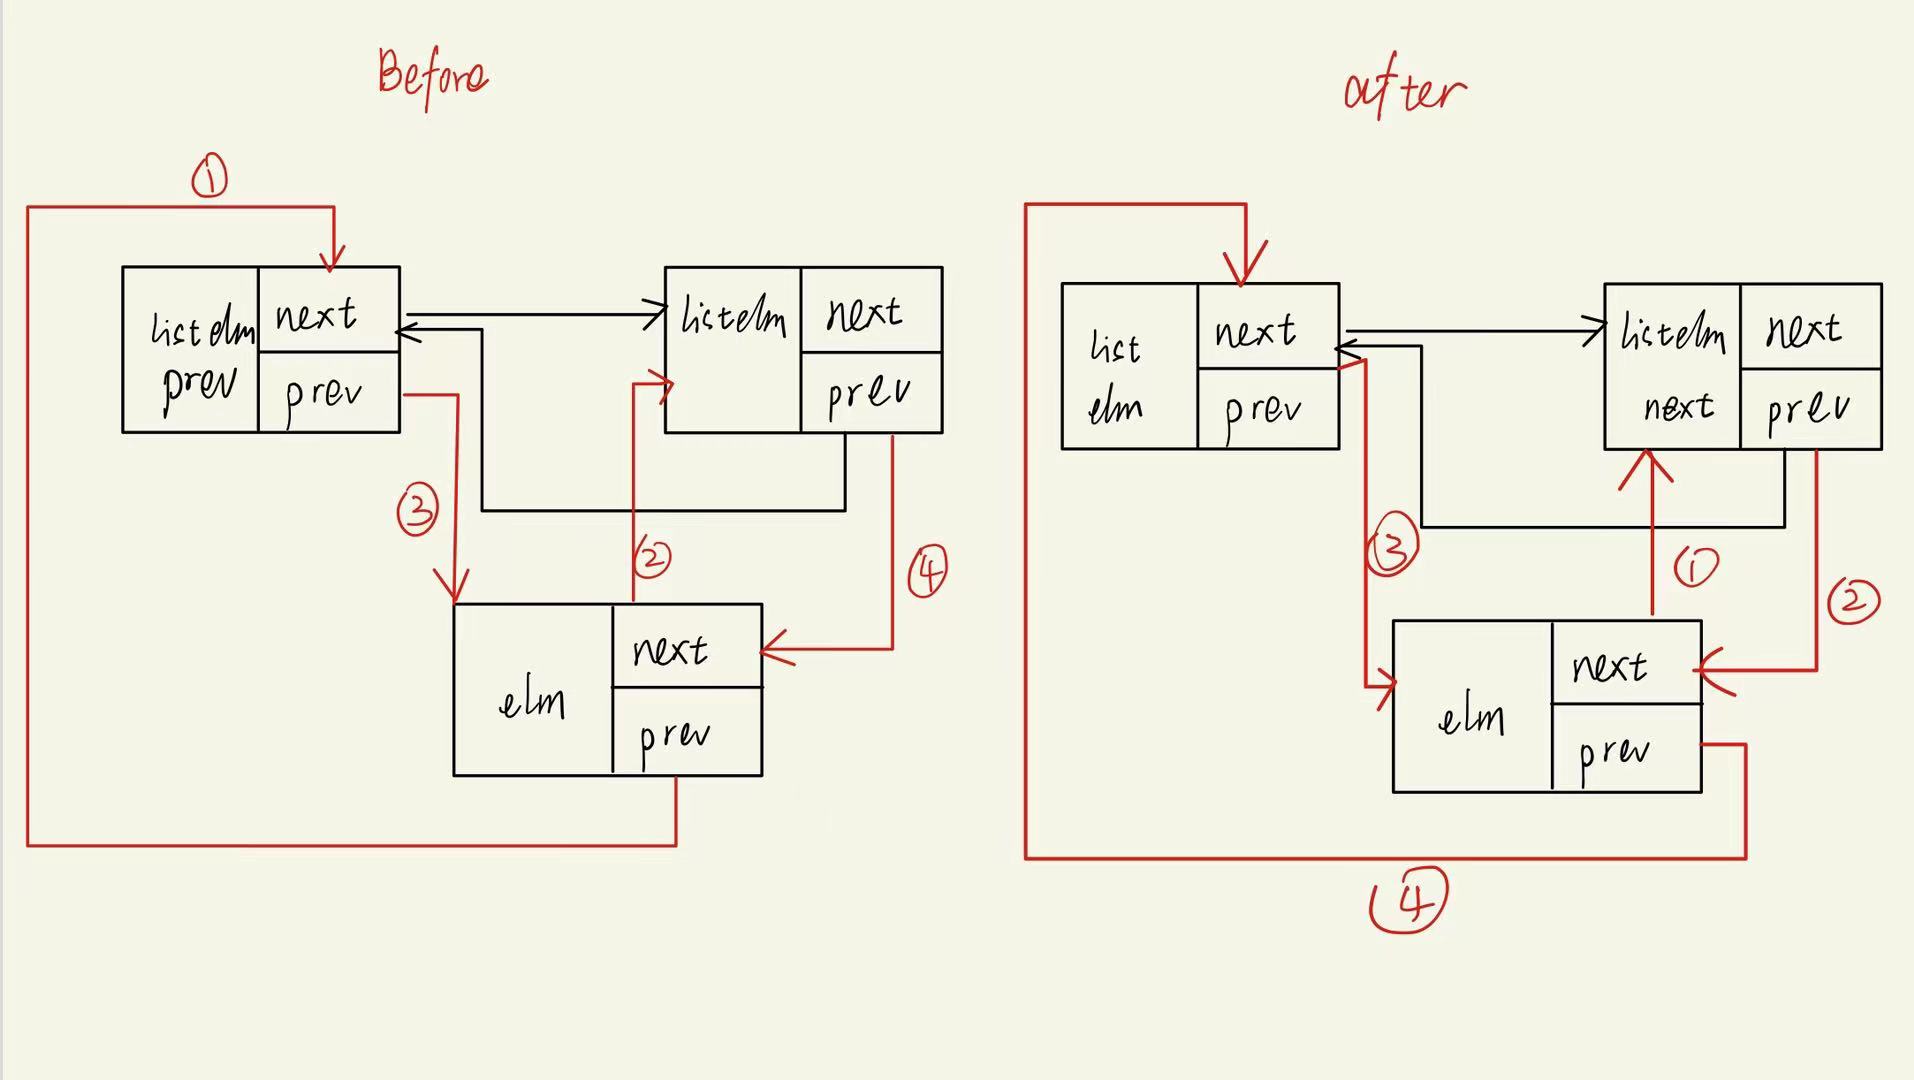 Before
①
listelm
prev
next
prev
listelm
next
prev
③
②
④
elm
next
prev
after
list
elm
next
prev
listelm
next
next
prev
③
①
②
elm
next
prev
④